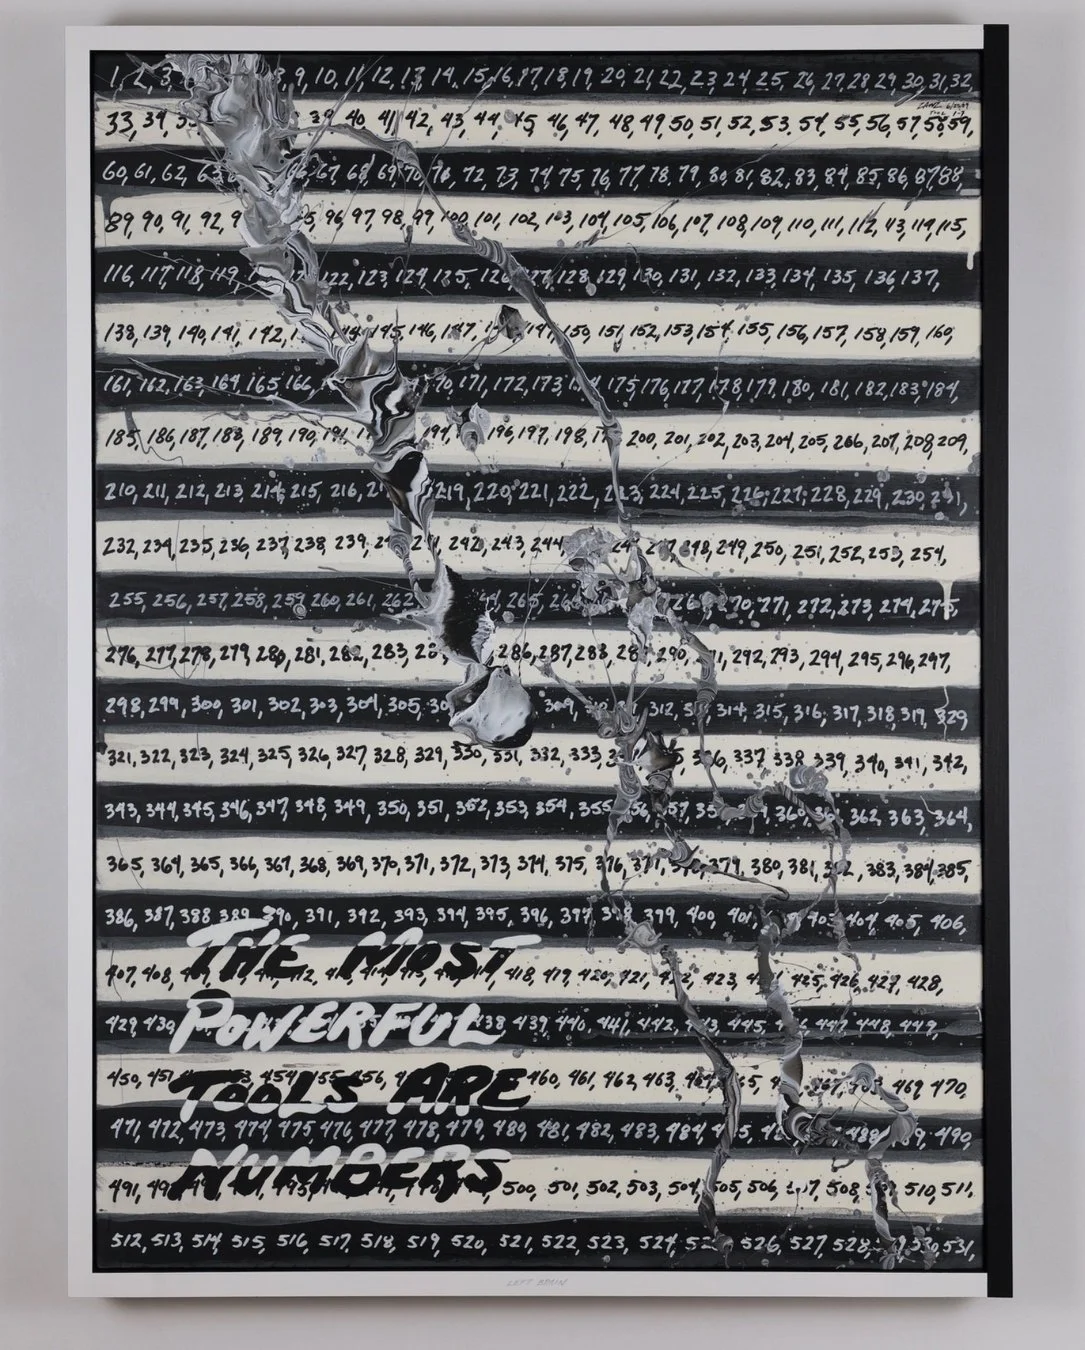 1, 2, 3, 9, 10, 11, 12, 13, 14, 15, 16, 17, 18, 19, 20, 21, 22, 23, 24, 25, 26, 27, 28, 29, 30, 31, 32,
33, 34, 39, 40, 41, 42, 43, 44, 45, 46, 47, 48, 49, 50, 51, 52, 53, 54, 55, 56, 57, 58, 59,
60, 61, 62, 63, 66, 67, 68, 69, 70, 71, 72, 73, 74, 75, 76, 77, 78, 79, 80, 81, 82, 83, 84, 85, 86, 87, 88,
89, 90, 91, 92, 96, 97, 98, 99, 100, 101, 102, 103, 104, 105, 106, 107, 108, 109, 110, 111, 112, 43, 114, 115,
116, 117, 118, 119, 122, 123, 124, 125, 126, 127, 128, 129, 130, 131, 132, 133, 134, 135, 136, 137,
138, 139, 140, 141, 142, 144, 145, 146, 147, 149, 150, 151, 152, 153, 154, 155, 156, 157, 158, 159, 160,
161, 162, 163, 164, 165, 166, 171, 172, 173, 175, 176, 177, 178, 179, 180, 181, 182, 183, 184,
185, 186, 187, 188, 189, 190, 191, 194, 196, 197, 198, 200, 201, 202, 203, 204, 205, 206, 207, 208, 209,
210, 211, 212, 213, 214, 215, 216, 219, 220, 221, 222, 223, 224, 225, 226, 227, 228, 229, 230, 231,
232, 234, 235, 236, 237, 238, 239, 242, 243, 244, 247, 248, 249, 250, 251, 252, 253, 254,
255, 256, 257, 258, 259, 260, 261, 262, 265, 270, 271, 272, 273, 274, 275,
276, 277, 278, 279, 280, 281, 282, 283, 286, 287, 288, 290, 292, 293, 294, 295, 296, 297,
298, 299, 300, 301, 302, 303, 304, 305, 309, 312, 314, 315, 316, 317, 318, 319, 329
321, 322, 323, 324, 325, 326, 327, 328, 329, 330, 331, 332, 333, 336, 337, 338, 339, 340, 341, 342,
343, 344, 345, 346, 347, 348, 349, 350, 351, 352, 353, 354, 355, 360, 362, 363, 364,
365, 364, 365, 366, 367, 368, 369, 370, 371, 372, 373, 374, 375, 376, 377, 379, 380, 381, 382, 383, 384, 385,
386, 387, 388, 389, 390, 391, 392, 393, 394, 395, 396, 397, 398, 399, 400, 401, 403, 404, 405, 406,
THE MOST
407, 408, 418, 419, 420, 421, 422, 423, 425, 426, 427, 428,
POWERFUL
429, 430, 438, 439, 440, 441, 442, 443, 445, 447, 448, 449,
TOOLS ARE
450, 451, 454, 455, 456, 460, 461, 462, 463, 464, 467, 469, 470,
471, 472, 473, 474, 475, 476, 477, 478, 479, 480, 481, 482, 483, 484, 485, 488, 490,
NUMBERS
491, 500, 501, 502, 503, 504, 505, 506, 507, 508, 510, 511,
512, 513, 514, 515, 516, 517, 518, 519, 520, 521, 522, 523, 524, 526, 527, 528, 530, 531,
LEFT BRAIN